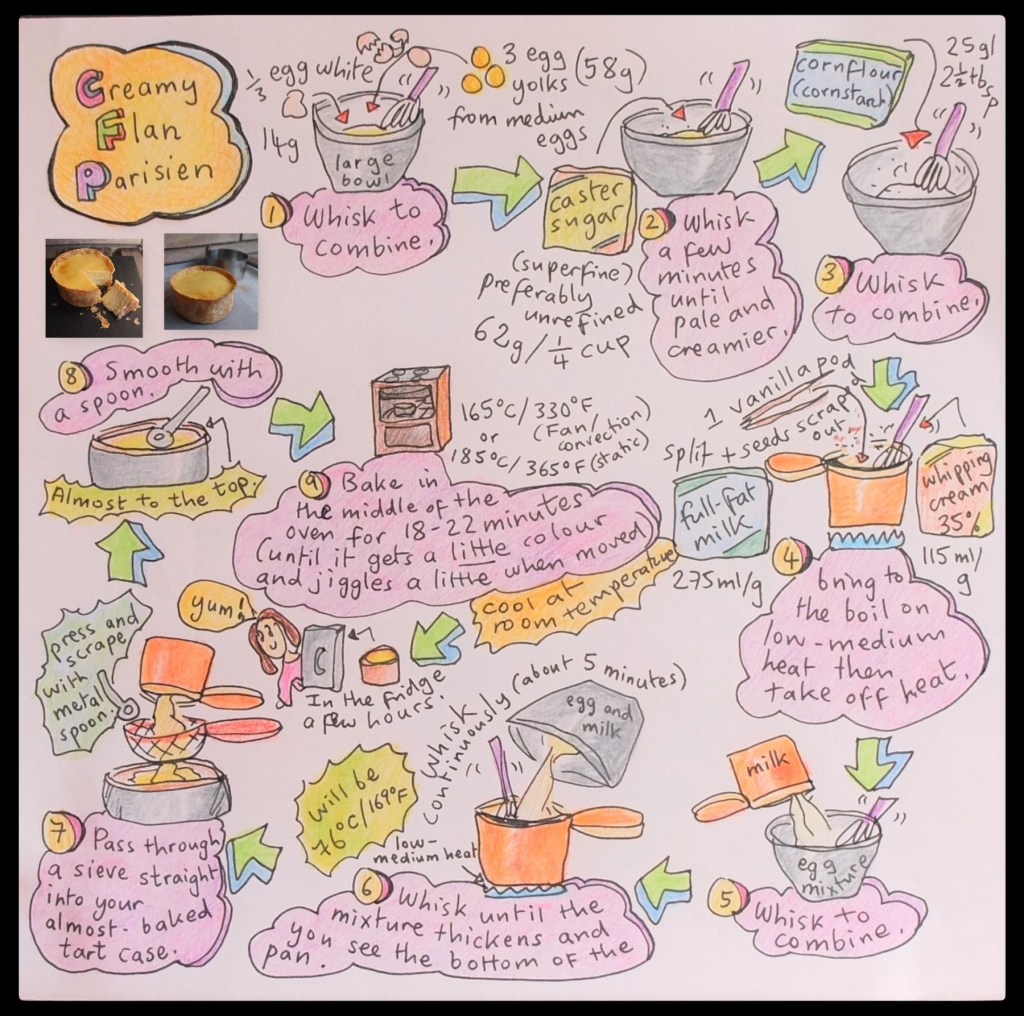 Creamy
Flan
Parisien
1/3 egg white
14g
3 egg
yolks (58g)
from medium
eggs
large
bowl
1 Whisk to
combine.
caster
sugar
(superfine)
preferably
unrefined
62g/1/4 cup
2 Whisk
a few
minutes
until
pale and
creamier.
cornflour
(cornstarch)
25g/
2 1/2 tbsp
3 Whisk
to combine.
1 vanilla pod
split + seeds scraped
out
full-fat
milk
275ml/g
whipping
cream
35%
115ml/
g
4 bring to
the boil on
low-medium
heat then
take off heat.
milk
egg
mixture
5 Whisk to
combine.
Whisk
continuously (about 5 minutes)
egg and
milk
will be
76°C/169°F
low-
medium heat
6 Whisk until the
mixture thickens and
you see the bottom of the
pan.
press and
scrape
with
metal
spoon.
7 Pass through
a sieve straight
into your
almost-baked
tart case.
8 Smooth with
a spoon.
Almost to the top.
165°C/330°F
(Fan/
convection)
or
185°C/365°F (static)
9 Bake in
the middle of the
oven for 18-22 minutes
(until it gets a little colour
and jiggles a little when moved)
cool at
room temperature
yum!
In the fridge
a few hours.